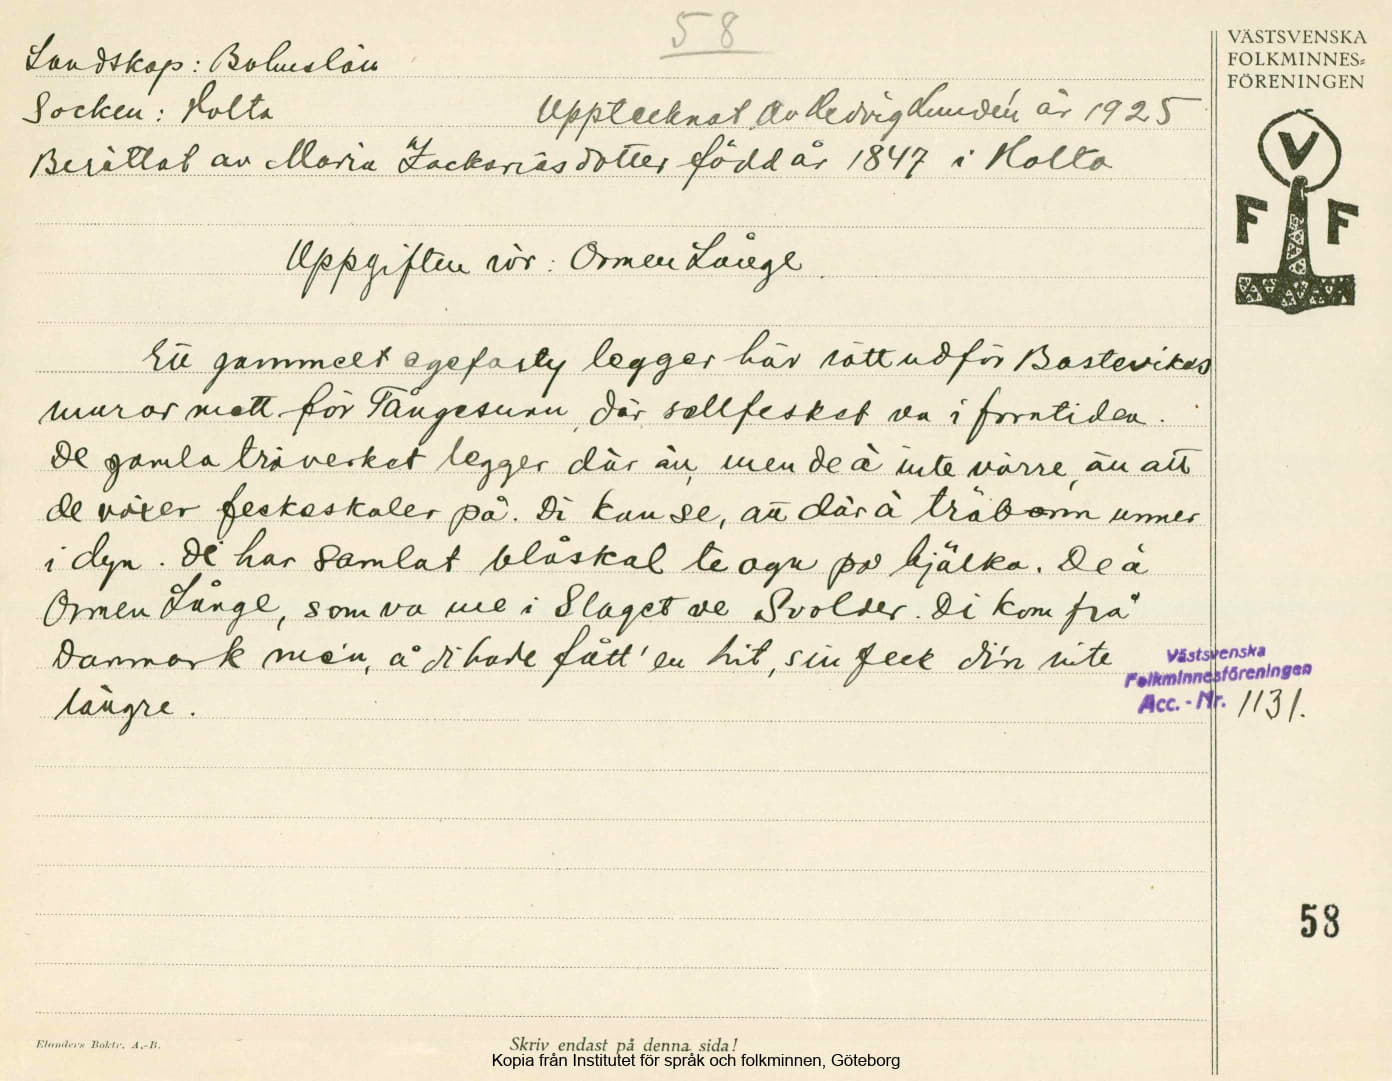 58
Landskap: Bohuslän
Socken: Holta Upptecknat av Hedvig Lundén år 1925
Berättat av Maria Zackariasdotter född år 1847 i Holta
Uppgiften rör: Ormen Långe.
Ett gammelt egefarty legger här rätt udför Bastevikas
murar mett för Tångesunn, där sellfesket va i forntiden.
De gamla träverket legger där än, men de ä inte värre, än att
de växer feskeskaler på. Di kan se, att där ä träbonn unner
i dyn. Di har samlat blåskal te agn på bjälka. De ä
Ormen Långe, som va me i Slaget ve Svolder. Di kom frå
Danmark me'n, å di hade fått 'en hit, sin feck di'n inte
längre.
VÄSTSVENSKA
FOLKMINNES=
FÖRENINGEN
V
F F
Västsvenska
Folkminnesföreningen
Acc. - Nr. 1131.
58
Elanders Boktr. A.-B.
Skriv endast på denna sida!
Kopia från Institutet för språk och folkminnen, Göteborg